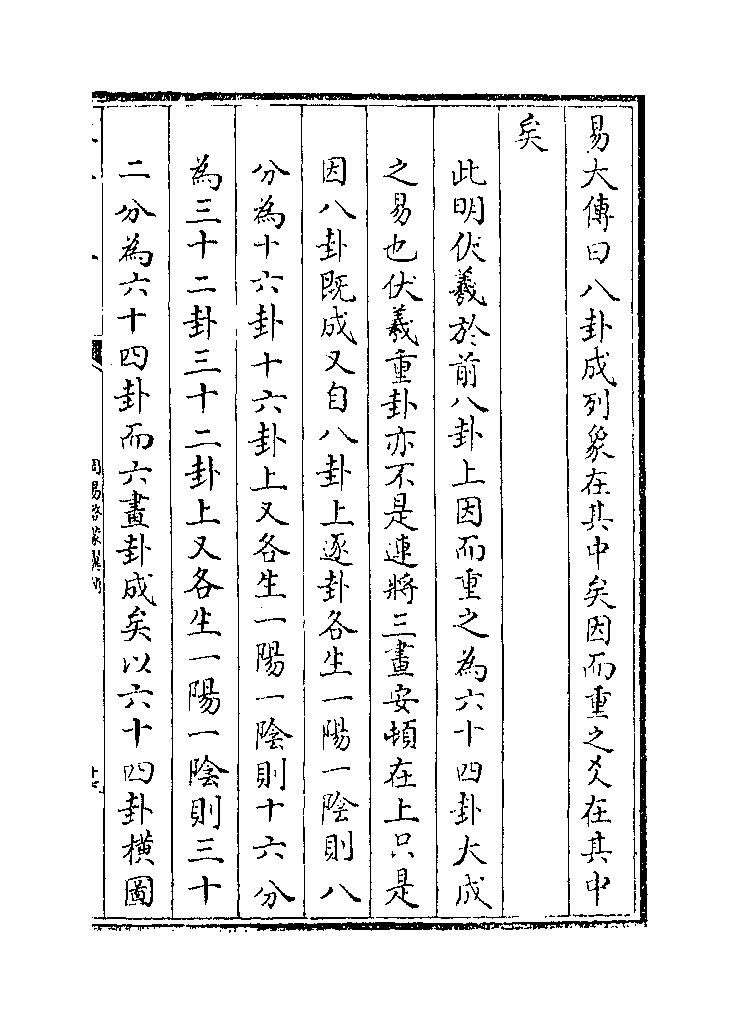 易大傳曰八卦成列象在其中矣因而重之爻在其中
矣
此明伏羲於前八卦上因而重之為六十四卦大成
之易也伏羲重卦亦不是連將三畫安頓在上只是
因八卦既成又自八卦上逐卦各生一陽一陰則八
分為十六卦十六卦上又各生一陽一陰則十六分
為三十二卦三十二卦上又各生一陽一陰則三十
二分為六十四卦而六畫卦成矣以六十四卦橫圖
周易啓蒙翼